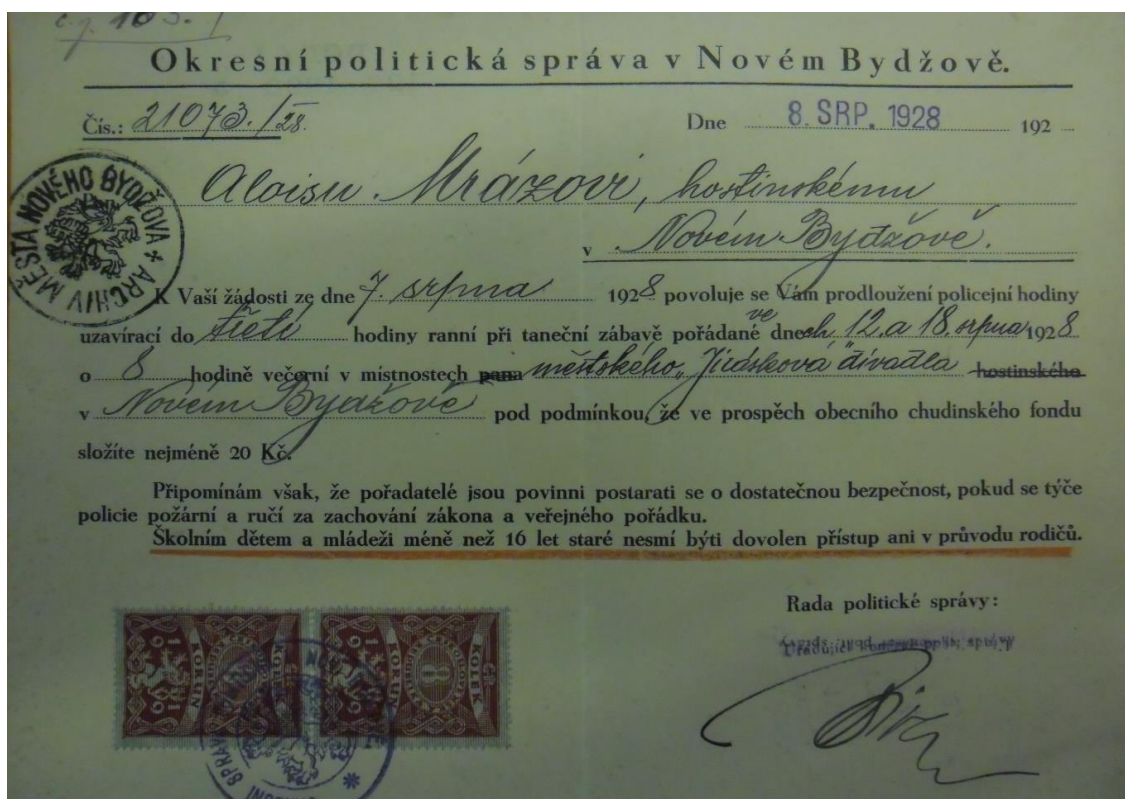 č. j. 103.
Okresní politická správa v Novém Bydžově.
Čís.: 21073./28. Dne 8. SRP. 1928 192
ARCHIV MĚSTA NOVÉHO BYDŽOVA
Aloisu Mrázovi, hostinskému
v Novém Bydžově.
K Vaší žádosti ze dne 7. srpna 1928 povoluje se Vám prodloužení policejní hodiny
uzavírací do třetí hodiny ranní při taneční zábavě pořádané ve dnech 12. a 18. srpna 1928
o 8 hodině večerní v místnostech pana městského „Jiráskova" divadla hostinského
v Novém Bydžově pod podmínkou, že ve prospěch obecního chudinského fondu
složíte nejméně 20 Kč.
Připomínám však, že pořadatelé jsou povinni postarati se o dostatečnou bezpečnost, pokud se týče
policie požární a ručí za zachování zákona a veřejného pořádku.
Školním dětem a mládeži méně než 16 let staré nesmí býti dovolen přístup ani v průvodu rodičů.
Rada politické správy:
KOLEK
8
KORUN
1919
KOLEK
8
KORUN
1919